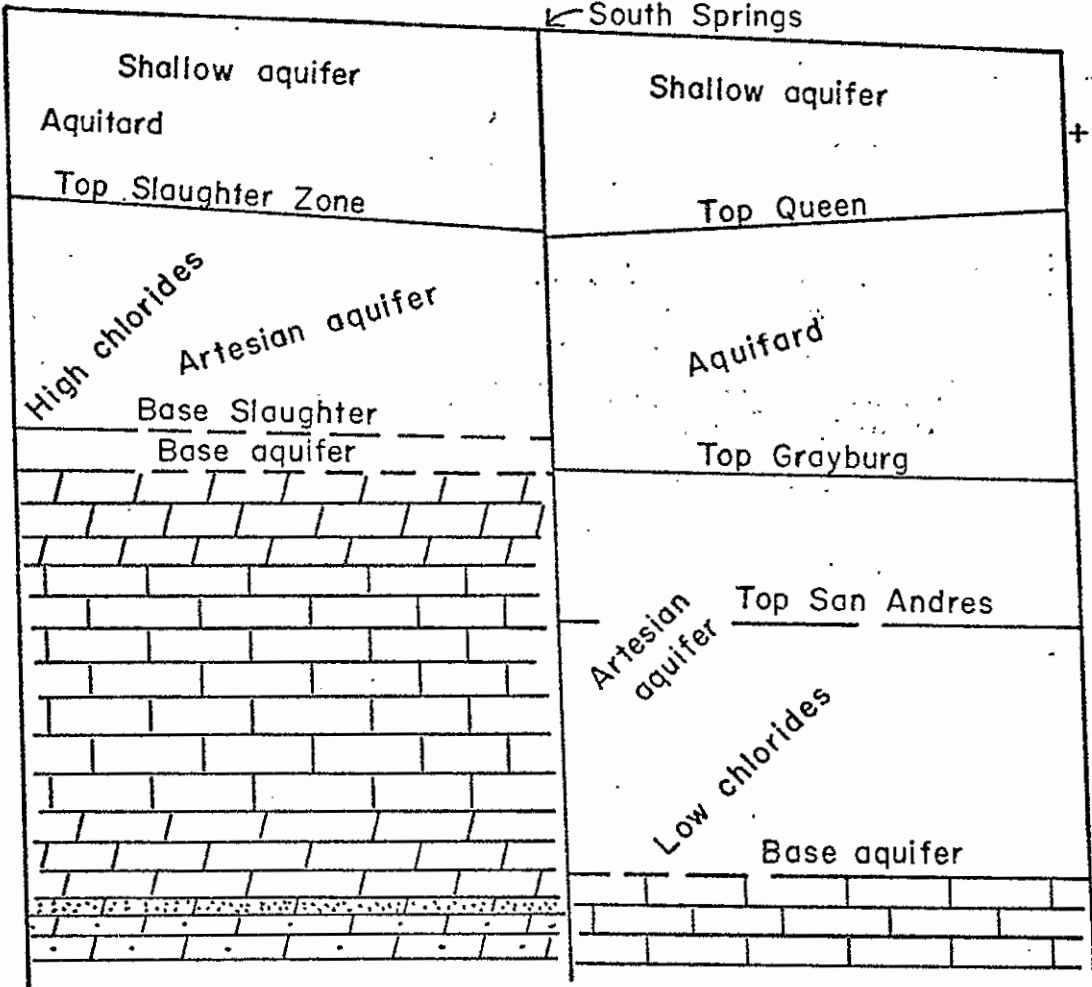 South Springs
Shallow aquifer
Aquitard
Top Slaughter Zone
High chlorides
Artesian aquifer
Base Slaughter
Base aquifer
Shallow aquifer
Top Queen
Aquifard
Top Grayburg
Top San Andres
Artesian
aquifer
Low chlorides
Base aquifer